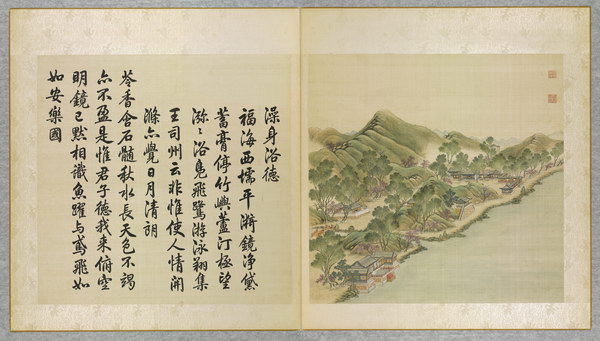 澡身浴德
福海西壖平漪鏡净黛
蓄膏停竹嶼蘆汀極望
㳽〻浴鳧飛鷺游泳翔集
王司州云非惟使人情開
滌亦覺日月清朗
苓香含石髓秋水長天色不竭
亦不盈是惟君子德我來俯空
明鏡已默相識魚躍與鳶飛如
如安樂國